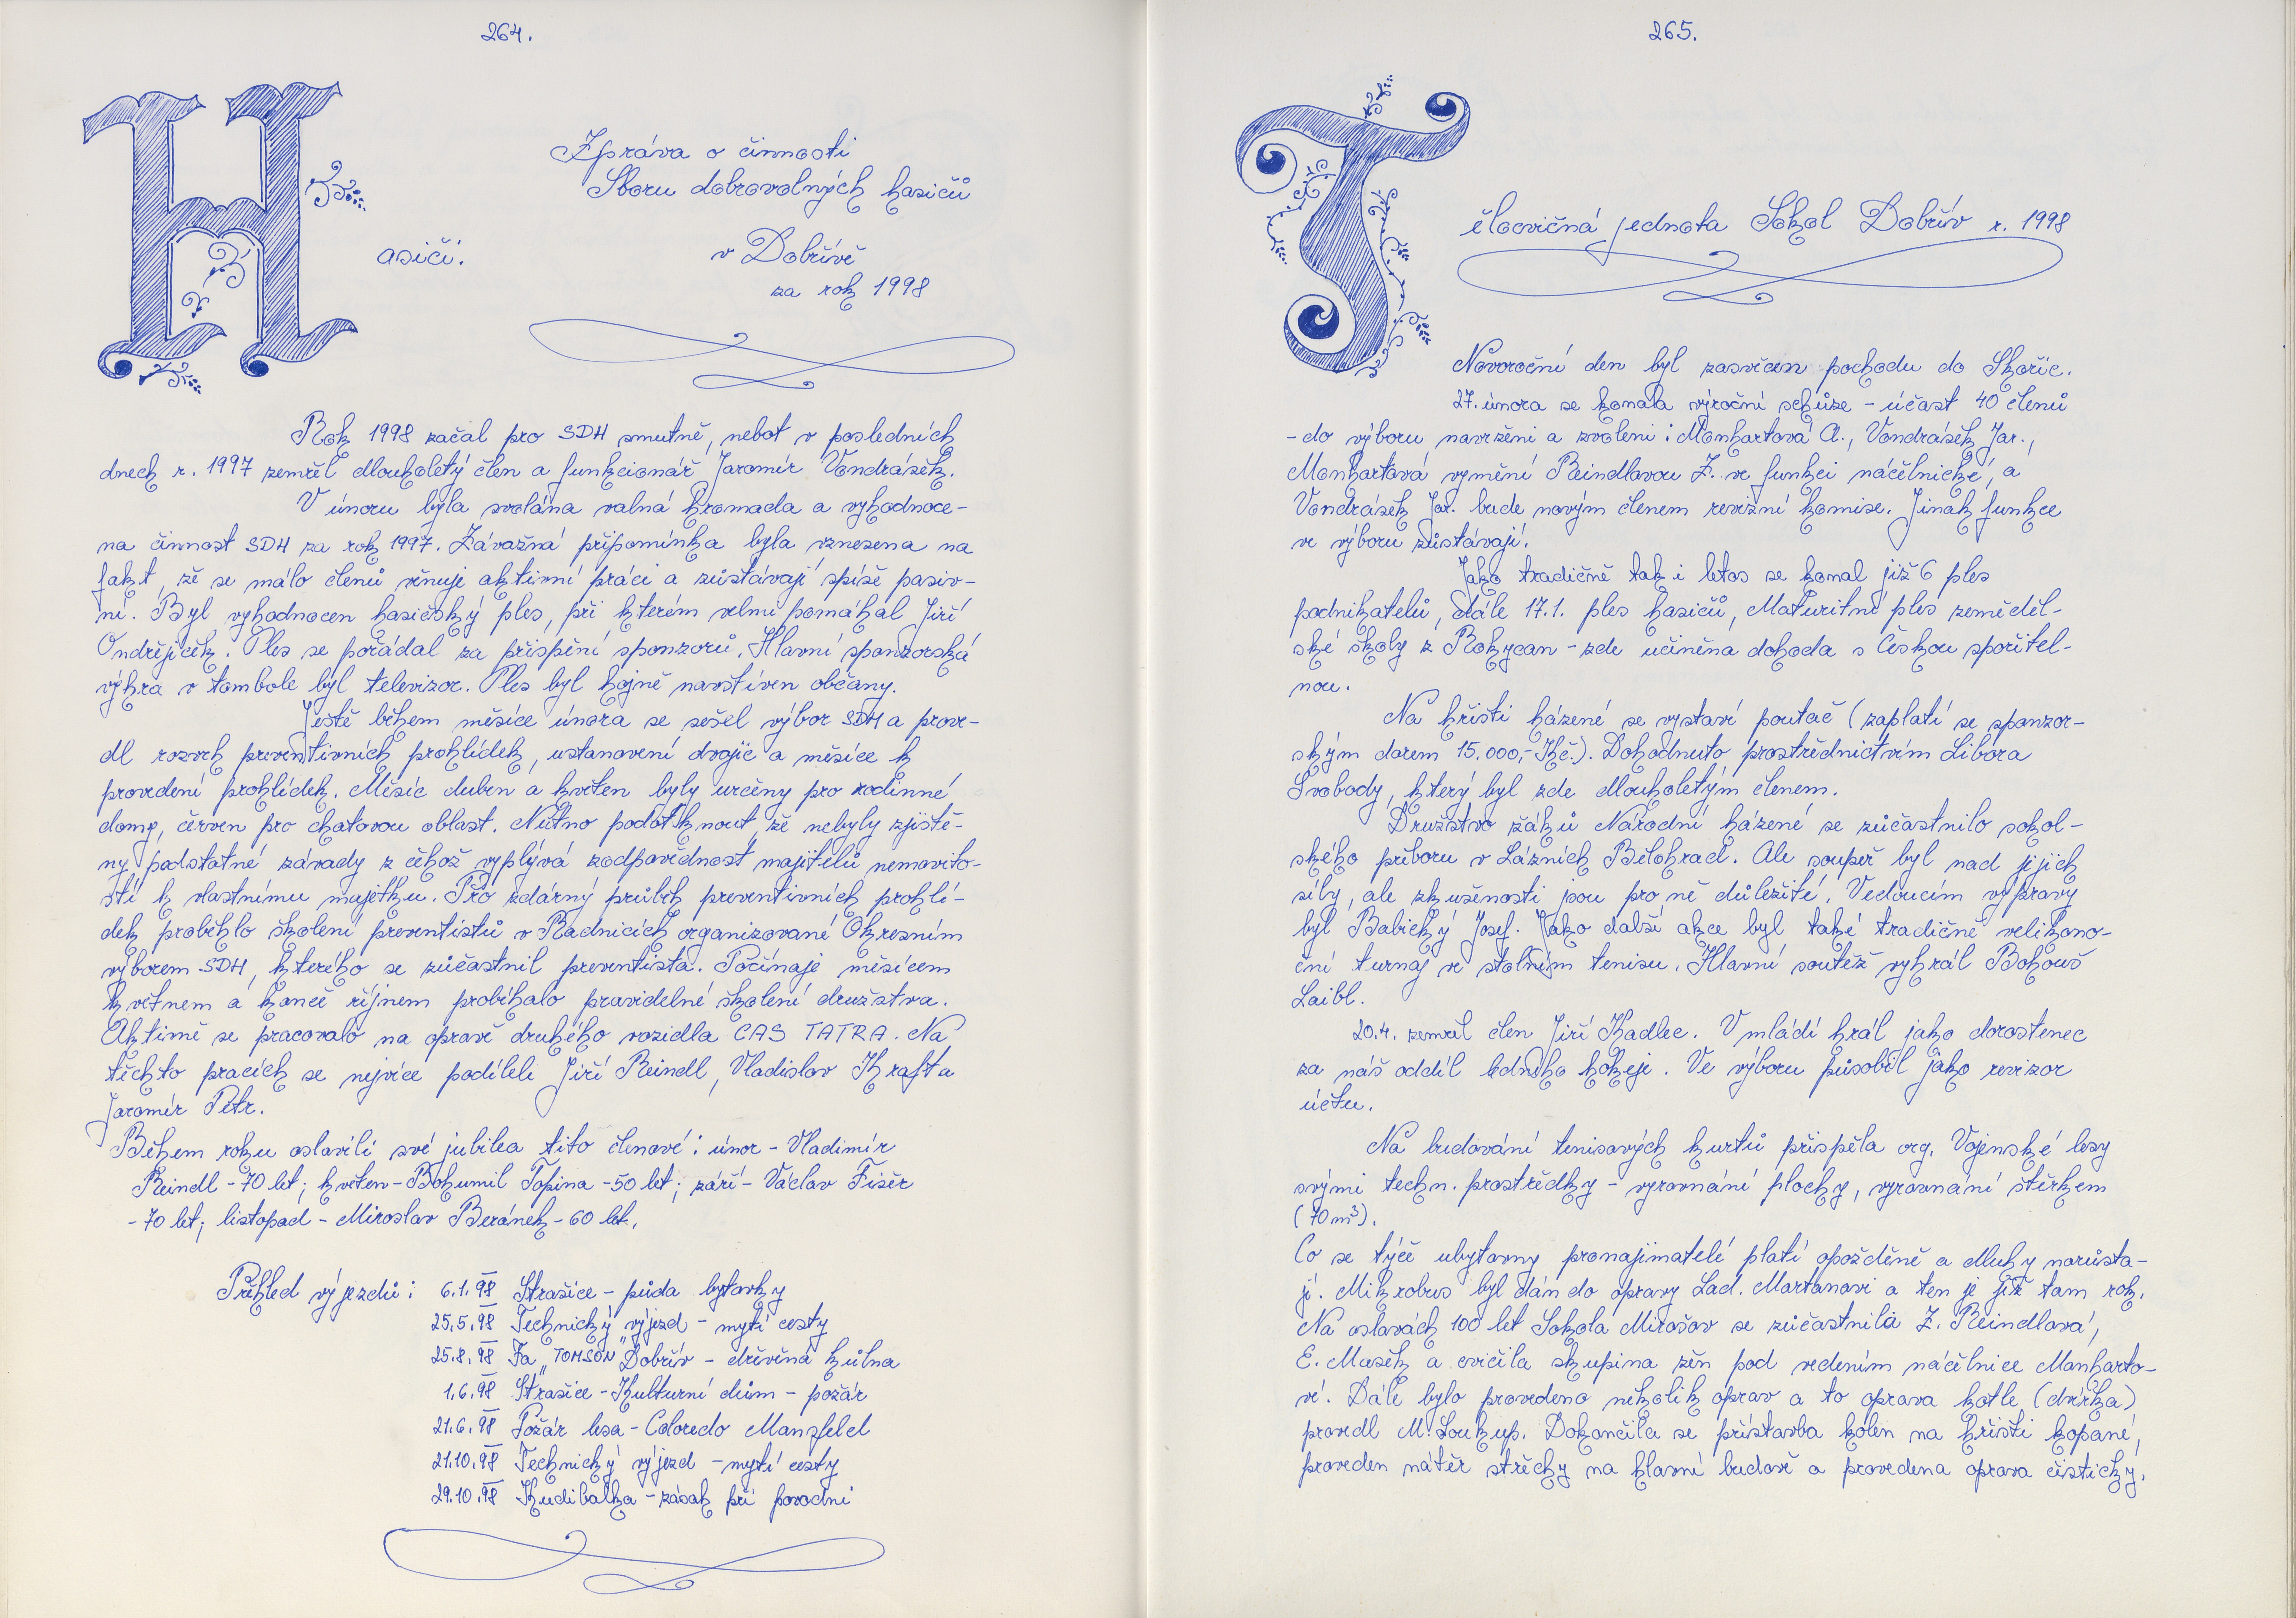 264.
Zpráva o činnosti
Sboru dobrovolných hasičů
Hasiči. v Dobřívě
za rok 1998
Rok 1998 začal pro SDH smutně, nebot v posledních
dnech r. 1997 zemřel dlouholetý člen a funkcionář Jaromír Vondrášek.
V únoru byla svolána valná hromada a vyhodnoce-
na činnost SDH za rok 1997. Závažná připomínka byla vznesena na
fakt, že se málo členů věnuje aktivní práci a zůstávají spíše pasiv-
ní. Byl vyhodnocen hasičský ples, při kterém velmi pomáhal Jiří
Ondřejíček. Ples se pořádal za přispění sponzorů. Hlavní sponzorská
výhra v tombole byl televizor. Ples byl hojně navštíven občany.
Ještě během měsíce února se sešel výbor SDH a prove-
dl rozvrh preventivních prohlídek, ustanovení dvojic a měsíce k
provedení prohlídek. Měsíc duben a květen byly určeny pro rodinné
domy, červen pro chatovou oblast. Nutno podotknout, že nebyly zjiště-
ny podstatné závady z čehož vyplývá zodpovědnost majitelů nemovito-
stí k vlastnímu majetku. Pro zdárný průběh preventivních prohlí-
dek proběhlo školení preventistů v Radnicích organizované Okresním
výborem SDH, kterého se zúčastnil preventista. Počínaje měsícem
květnem a konče říjnem probíhalo pravidelné školení družstva.
Aktivně se pracovalo na opravě druhého vozidla CAS TATRA. Na
těchto pracích se nejvíce podíleli Jiří Reindl, Vladislav Kraft a
Jaromír Petr.
Během roku oslavili své jubilea tito členové: únor - Vladimír
Reindl - 70 let; květen - Bohumil Topina - 50 let; září - Václav Fišer
- 70 let; listopad - Miroslav Beránek - 60 let.
Přehled výjezdů: 6.1.98 Strašice - půda bytovky
25.5.98 Technický výjezd - mytí cesty
25.8.98 Fa „TOMSON" Dobřív - dřevěná kůlna
1.6.98 Strašice - Kulturní dům - požár
21.6.98 Požár lesa - Coloredo Mansfeld
21.10.98 Technický výjezd - mytí cesty
29.10.98 Hudibalka - zásah při povodni
265.
Tělocvičná jednota Sokol Dobřív r. 1998
Novoroční den byl zasvěcen pochodu do Skořic.
27. února se konala výroční schůze - účast 40 členů
- do výboru navrženi a zvoleni: Monhartová A., Vondrášek Jar.,
Monhartová vymění Reindlovou Z. ve funkci náčelnické, a
Vondrášek Jar. bude novým členem revizní komise. Jinak funkce
ve výboru zůstávají.
Jako tradičně tak i letos se konal již 6 ples
podnikatelů, dále 17.1. ples hasičů, Maturitní ples zeměděl-
ské školy z Rokycan - zde učiněna dohoda s Českou spořitel-
nou.
Na hřišti házené se vystaví poutač (zaplatí se sponzor-
ským darem 15.000,- Kč.). Dohodnuto prostřednictvím Libora
Svobody, který byl zde dlouholetým členem.
Družstvo žáků Národní házené se zúčastnilo sokol-
ského přeboru v Lázních Bělohrad. Ale soupeř byl nad jejich
síly, ale zkušenosti jsou pro ně důležité. Vedoucím výpravy
byl Babický Josef. Jako další akce byl také tradičně velikono-
ční turnaj ve stolním tenisu. Hlavní soutěž vyhrál Bohouš
Laibl.
20.4. zemřel člen Jiří Kadlec. V mládí hrál jako dorostenec
za náš oddíl ledního hokeje. Ve výboru působil jako revizor
účtu.
Na budování tenisových kurtů přispěla org. Vojenské lesy
svými techn. prostředky - vyrovnání plochy, vyrovnání štěrkem
(70 m³).
Co se týče ubytovny pronajímatelé platí opožděně a dluhy narůsta-
jí. Mikrobus byl dán do opravy Lad. Martanovi a ten je již tam rok.
Na oslavách 100 let Sokola Mirošov se zúčastnila Z. Reindlová,
E. Mašek a cvičila skupina žen pod vedením náčelnice Manharto-
vé. Dále bylo provedeno několik oprav a to oprava kotle (dvířka)
provedl M. Soukup. Dokončila se přístavba kolen na hřišti kopané,
proveden nátěr střechy na hlavní budově a provedena oprava čističky.